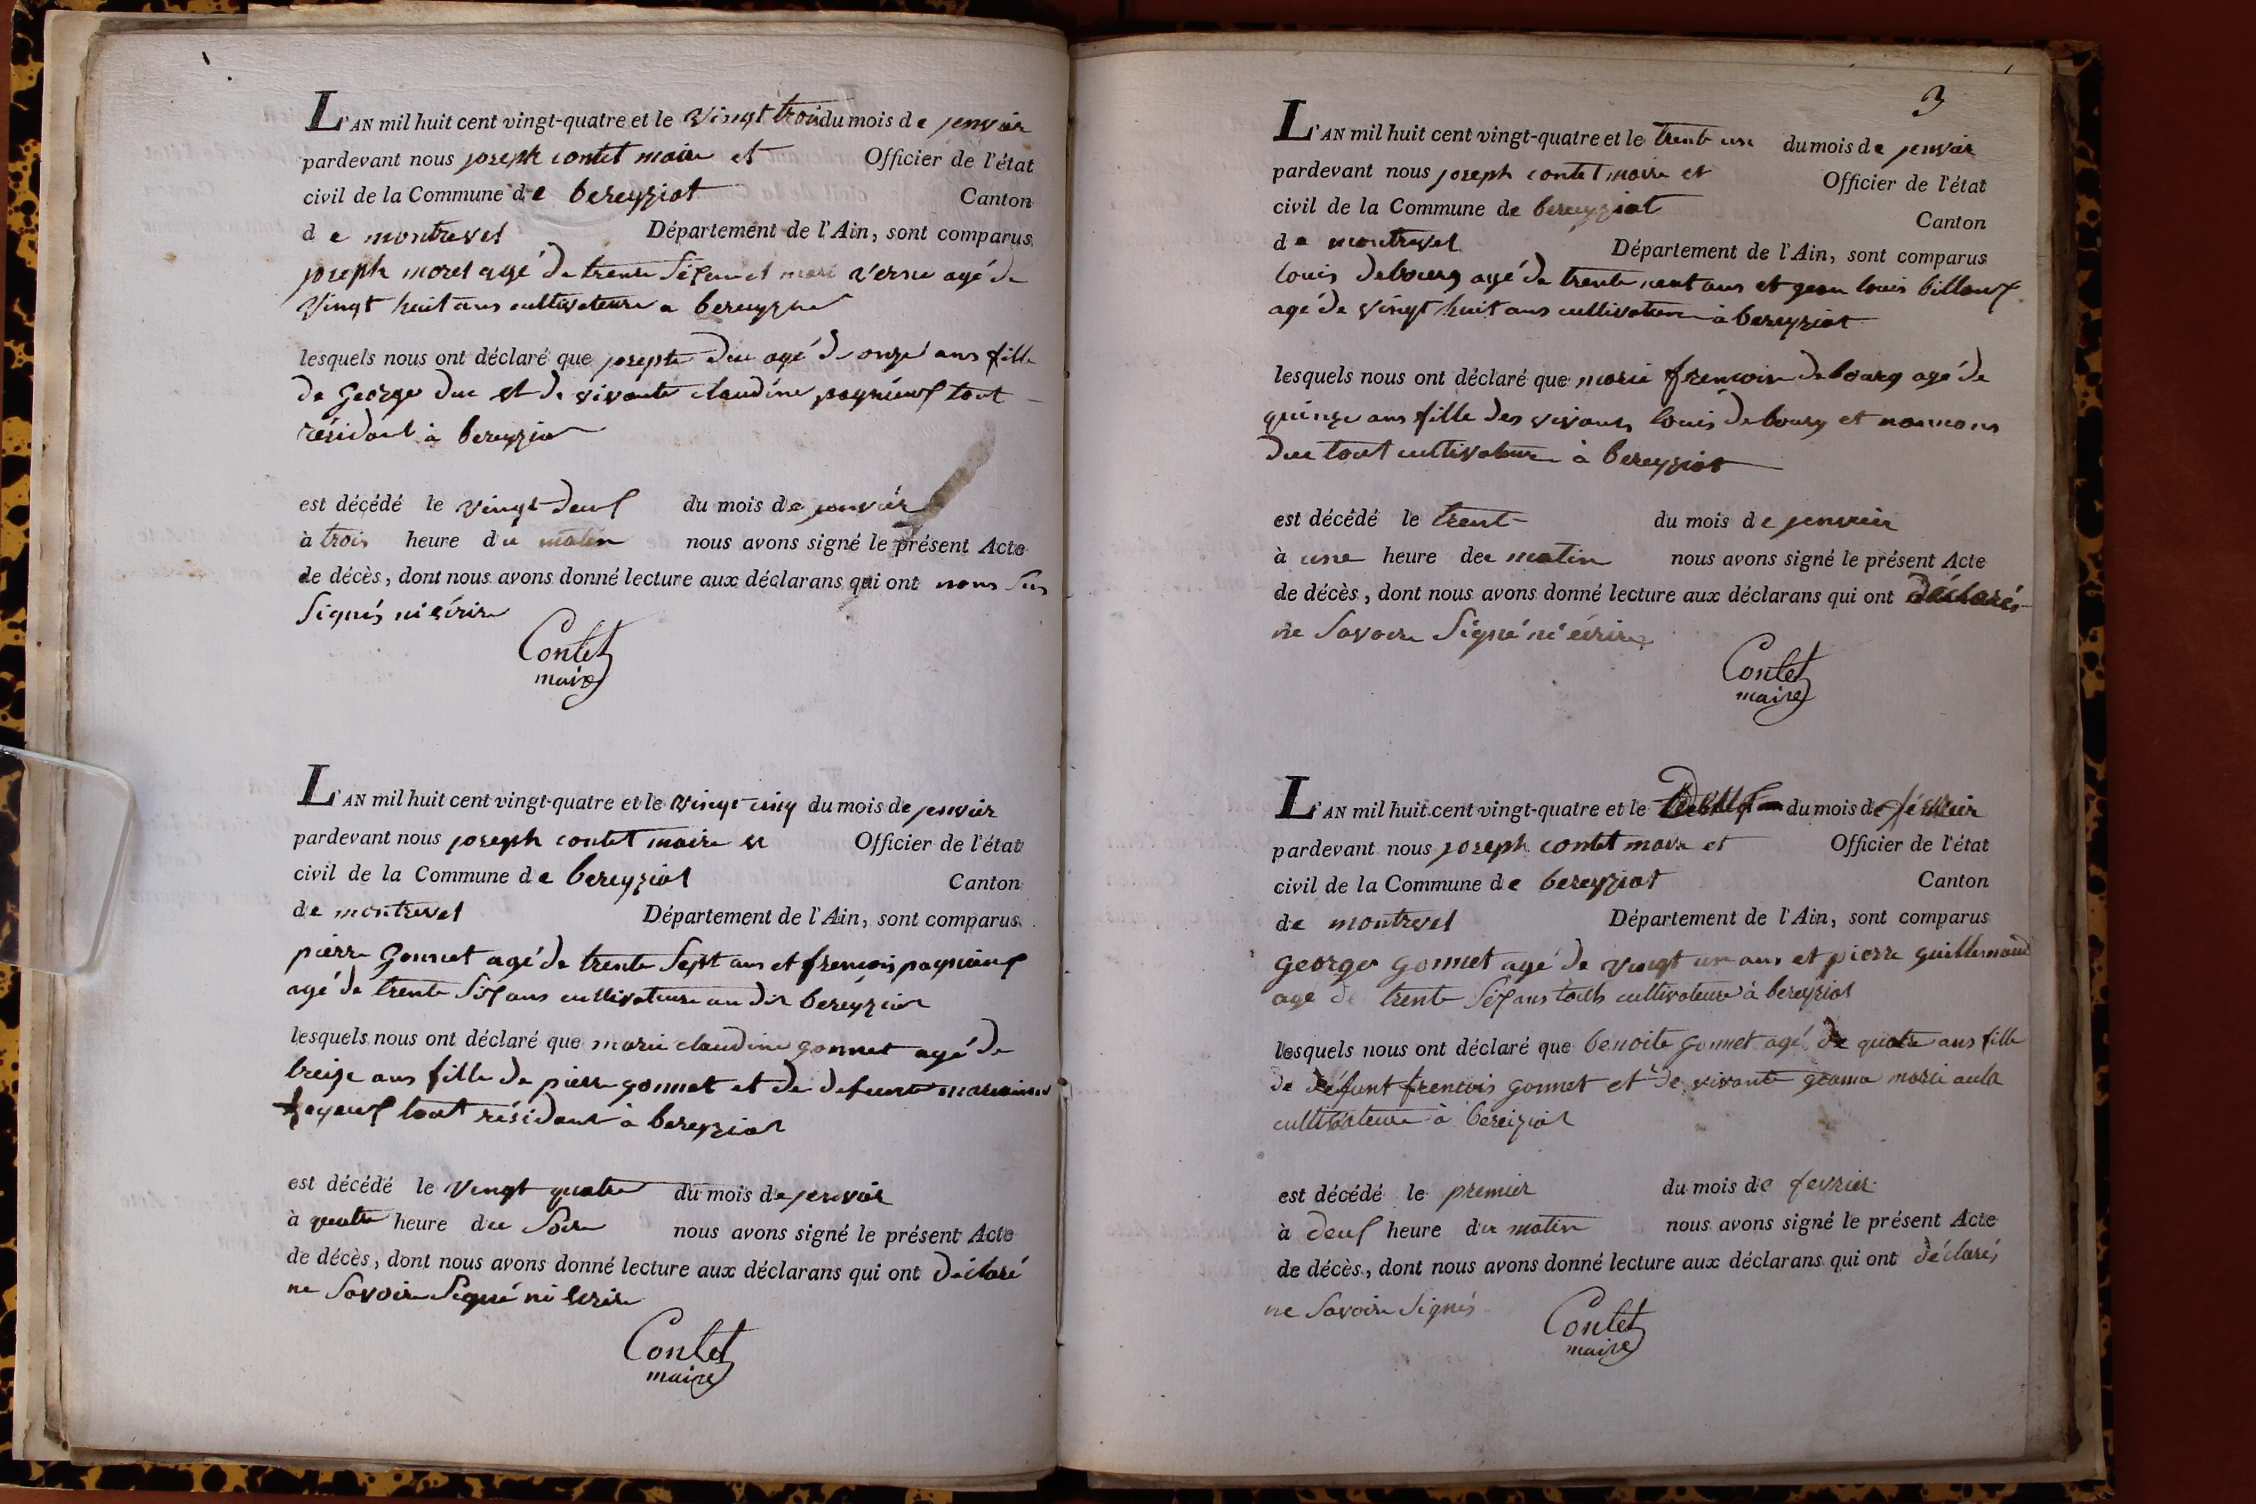 L'AN mil huit cent vingt-quatre et le vingt trois du mois de jenvier
pardevant nous joseph contet maire et Officier de l'état
civil de la Commune de bereyziat Canton
de montrevel Département de l'Ain, sont comparus
joseph morel agé de trente six et verne agé de
vingt huit ans cultivateure a bereyziat
lesquels nous ont déclaré que josepte duc agé de onze ans fille
de George duc et de vivante claudine pagnieux tout
résidant à bereyziat
est décédé le vingt deux du mois de jenvier
à trois heure du matin nous avons signé le présent Acte
de décès, dont nous avons donné lecture aux déclarans qui ont nons sus
signés ni écrire
Contet
maire
L'AN mil huit cent vingt-quatre et le vingt cinq du mois de jenvier
pardevant nous joseph contet maire et Officier de l'état
civil de la Commune de bereyziat Canton
de montrevel Département de l'Ain, sont comparus
pierre Gonnet agé de trente sept ans et frencois pagnieux
agé de trente six ans cultivateure au dit bereyziat
lesquels nous ont déclaré que marie claudine gonnet agé de
treize ans fille de pierre gonnet et de defunte
tout résidant à bereyziat
est décédé le vingt quatre du mois de jenvier
à quatre heure du soir nous avons signé le présent Acte
de décès, dont nous avons donné lecture aux déclarans qui ont déclaré
ne savoire signé ni écrire
Contet
maire
3
L'AN mil huit cent vingt-quatre et le trente un du mois de jenvier
pardevant nous joseph contet maire et Officier de l'état
civil de la Commune de bereyziat Canton
de montrevel Département de l'Ain, sont comparus
louis debourg agé de trente neuf ans et jean louis billoux
agé de vingt huit ans cultivateure à bereyziat
lesquels nous ont déclaré que marie frencoise debourg agé de
quinze ans fille des vivants louis debourg et
duc tout cultivateure à bereyziat
est décédé le trente du mois de jenvier
à une heure du matin nous avons signé le présent Acte
de décès, dont nous avons donné lecture aux déclarans qui ont déclarés
ne savoire signé ni écrire
Contet
maire
L'AN mil huit cent vingt-quatre et le du mois de février
pardevant nous joseph contet maire et Officier de l'état
civil de la Commune de bereyziat Canton
de montrevel Département de l'Ain, sont comparus
george gonnet agé de vingt un ans et pierre guillemaud
agé de trente six ans touts cultivateure à bereyziat
lesquels nous ont déclaré que benoite gonnet agé de quatre ans fille
de défunt frencois gonnet et de vivante marie
cultivateure à bereiziat
est décédé le premier du mois de fevrier
à deux heure du matin nous avons signé le présent Acte
de décès, dont nous avons donné lecture aux déclarans qui ont déclarés
ne savoire signés
Contet
maire